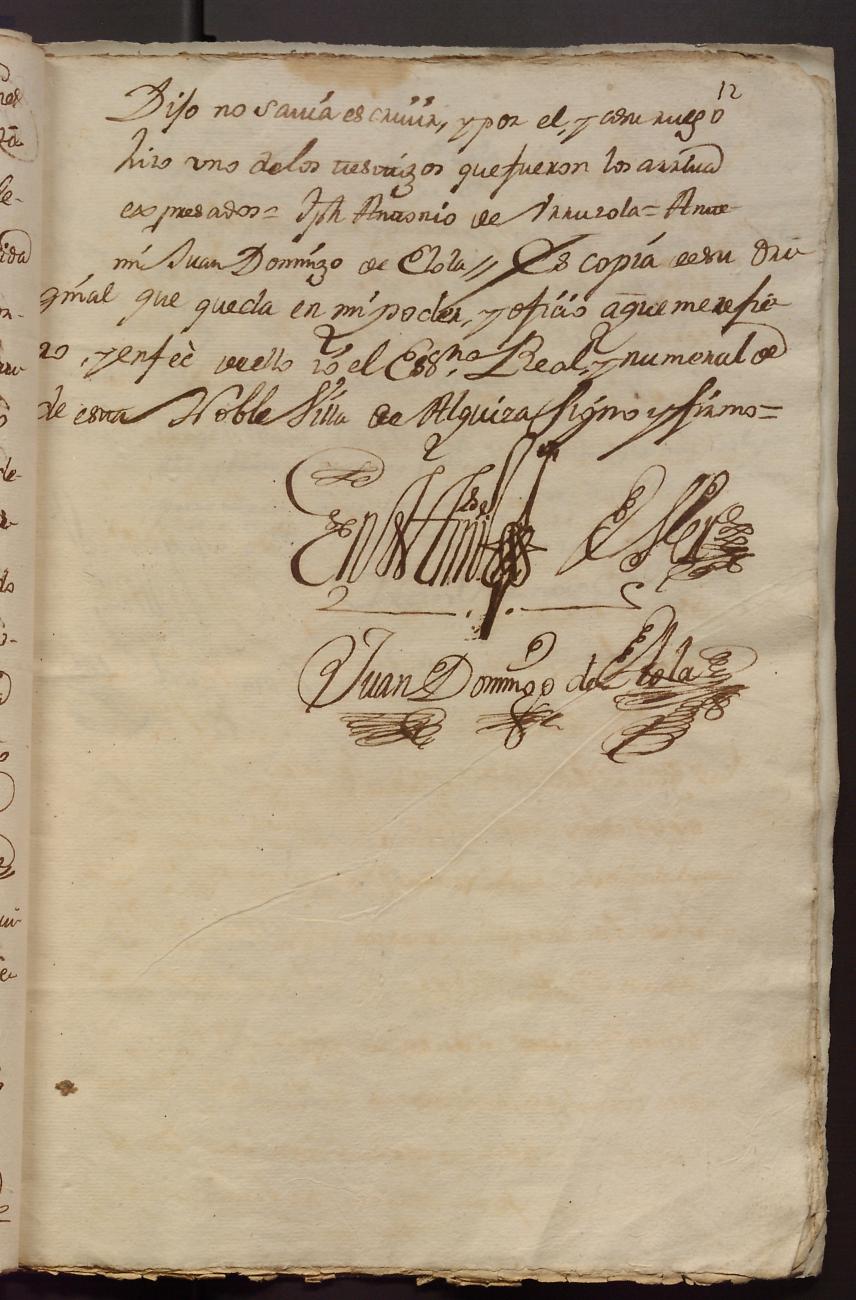 12
Dijo no savia escriuir, y por el, y asu ruego
hizo uno de los testigos que fueron los arriua
expresados= Jph Antonio de Yrruzola= Ante
mi Juan Domingo de Elola // Es copia de su Ori
ginal que queda en mi poder, y oficio aque me refie
ro, y enfeè de ello yò el Essno. Real, y numeral de
de esta Noble Villa de Alquiza signo y firmo=
En testimo de Vor
Juan Domingo de Elola